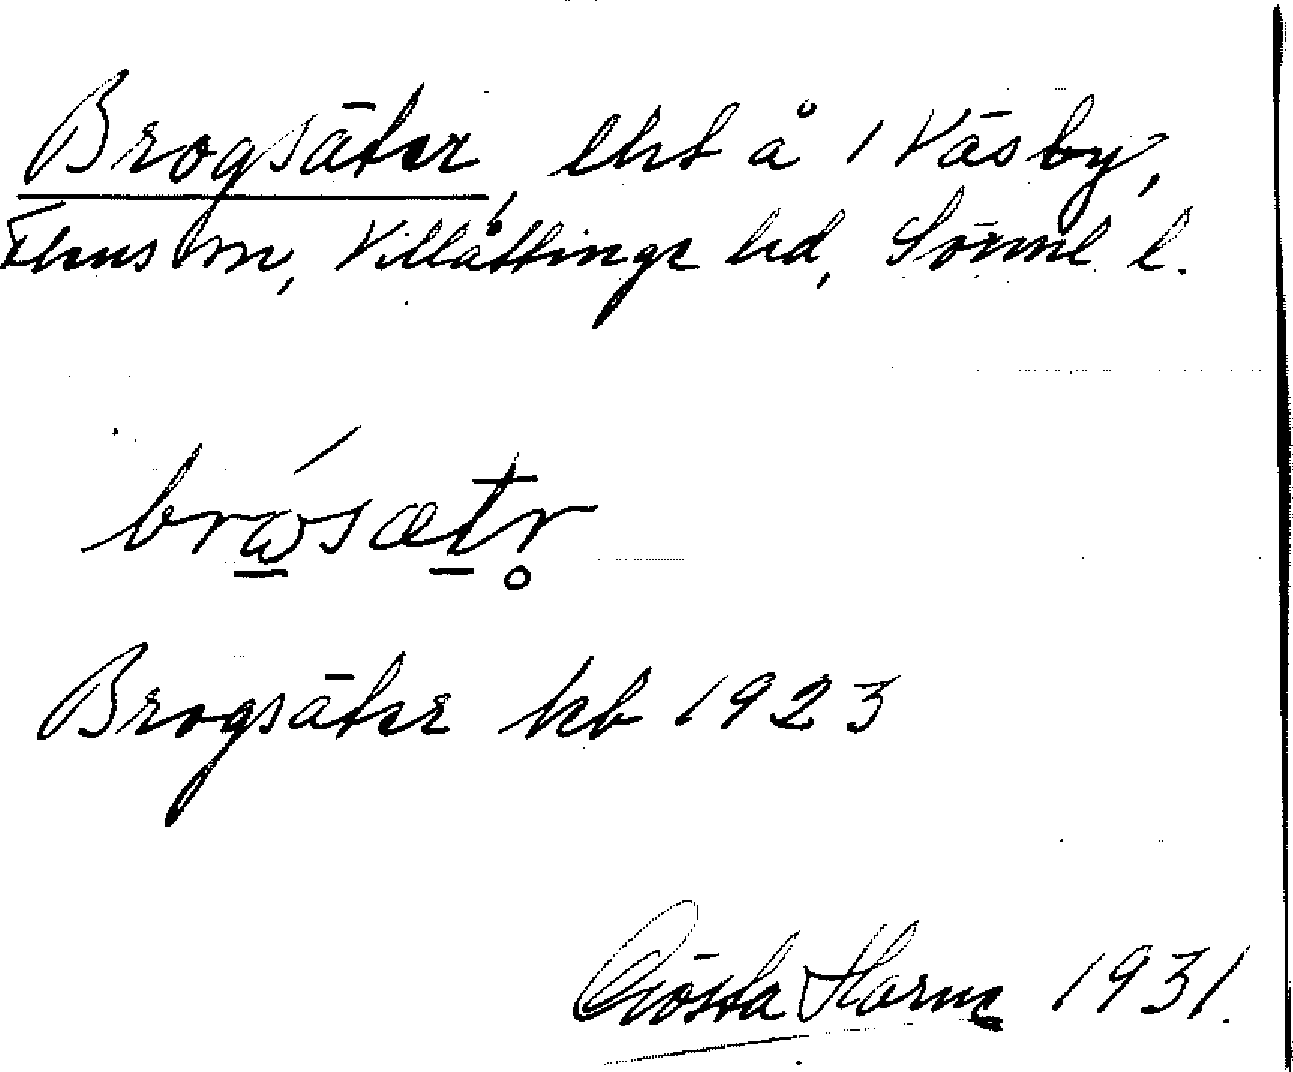 Brogsäter, lht å 1 Väsby,
Flens sn, Villåttinge hd, Sörml. l.
brásætr̥
Brogsäter kb 1923
Gösta Harne 1931.